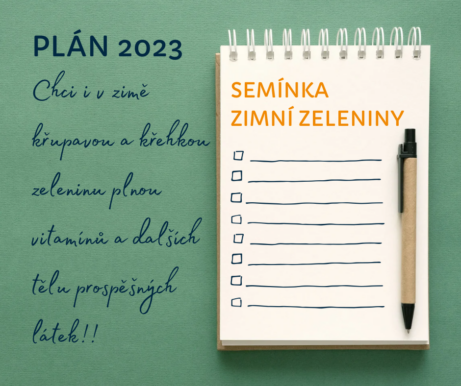 PLÁN 2023
Chci i v zimě
křupavou a křehkou
zeleninu plnou
vitamínů a dalších
tělu prospěšných
látek!!
SEMÍNKA
ZIMNÍ ZELENINY